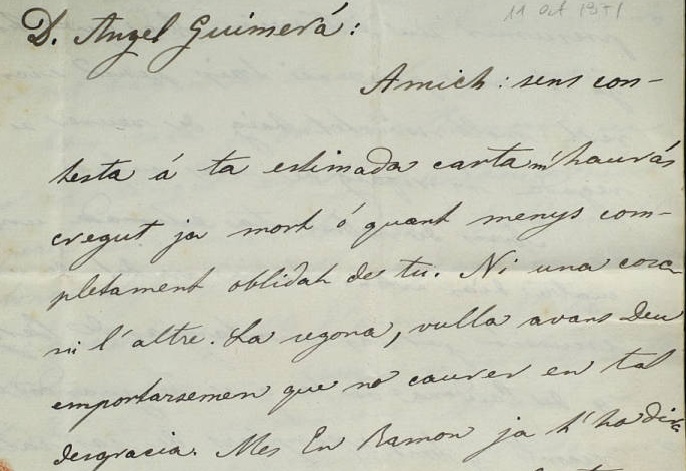 11 Oct 1871
D. Angel Guimerá:
Amich: sens con-
testa á ta estimada carta m'haurás
cregut ja mort ó quant menys com-
pletament oblidat de tu. Ni una cosa
ni l'altre. La segona, vulla avans Deu
emportarsemen que no caurer en tal
desgracia. Mes En Ramon ja t'ho dirá